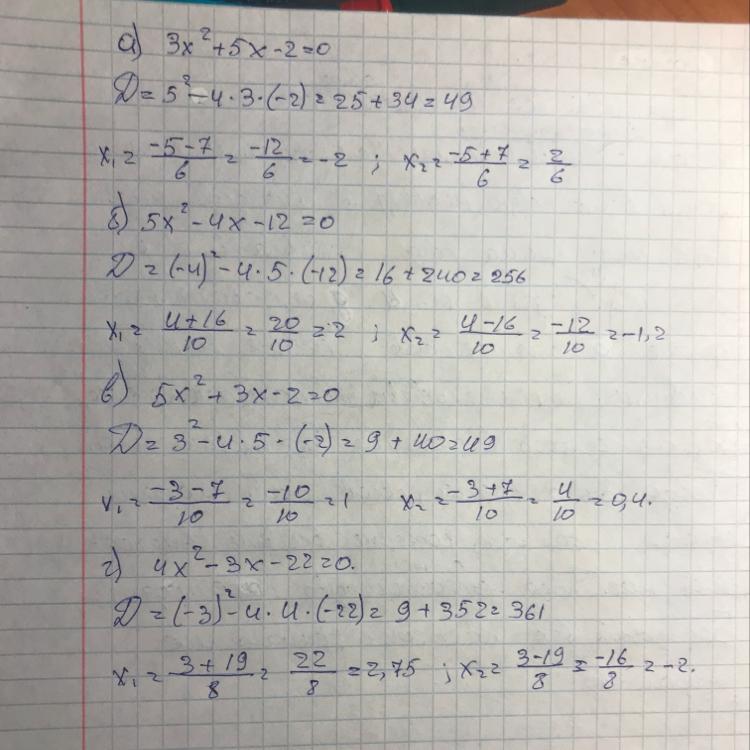 а) 3x² + 5x - 2 = 0
D = 5² - 4 · 3 · (-2) = 25 + 34 = 49
x₁ = (-5-7)/6 = -12/6 = -2 ; x₂ = (-5+7)/6 = 2/6
б) 5x² - 4x - 12 = 0
D = (-4)² - 4 · 5 · (-12) = 16 + 240 = 256
x₁ = (4+16)/10 = 20/10 = 2 ; x₂ = (4-16)/10 = -12/10 = -1,2
в) 5x² + 3x - 2 = 0
D = 3² - 4 · 5 · (-2) = 9 + 40 = 49
x₁ = (-3-7)/10 = -10/10 = 1 x₂ = (-3+7)/10 = 4/10 = 0,4.
г) 4x² - 3x - 22 = 0.
D = (-3)² - 4 · 4 · (-22) = 9 + 352 = 361
x₁ = (3+19)/8 = 22/8 = 2,75 ; x₂ = (3-19)/8 = -16/8 = -2.